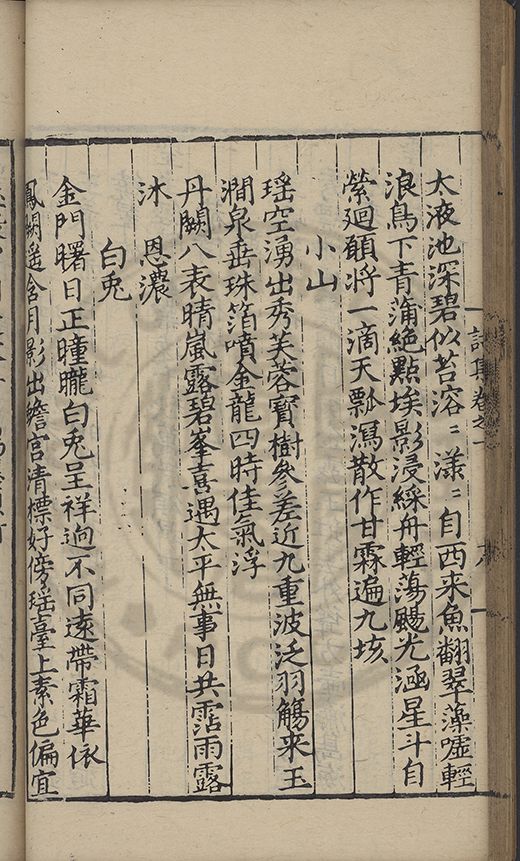 太液池深碧似苔溶〻漾〻自西来魚翻翠藻噓輕
浪鳥下青蒲絶點埃影浸綵舟輕蕩颺光涵星斗自
縈廻願將一滴天瓢瀉散作甘霖遍九垓
小山
瑶空湧出秀芙蓉寳樹參差近九重波泛羽觴来玉
澗泉垂珠箔噴金龍四時佳氣浮
丹闕八表晴嵐露碧峯喜遇太平無事日共霑雨露
沐 恩濃
白兎
金門曙日正曈曨白兎呈祥逈不同遠帶霜華依
鳳闕遥含月影出蟾宫清標好傍瑶臺上素色偏宜
詩集卷之一